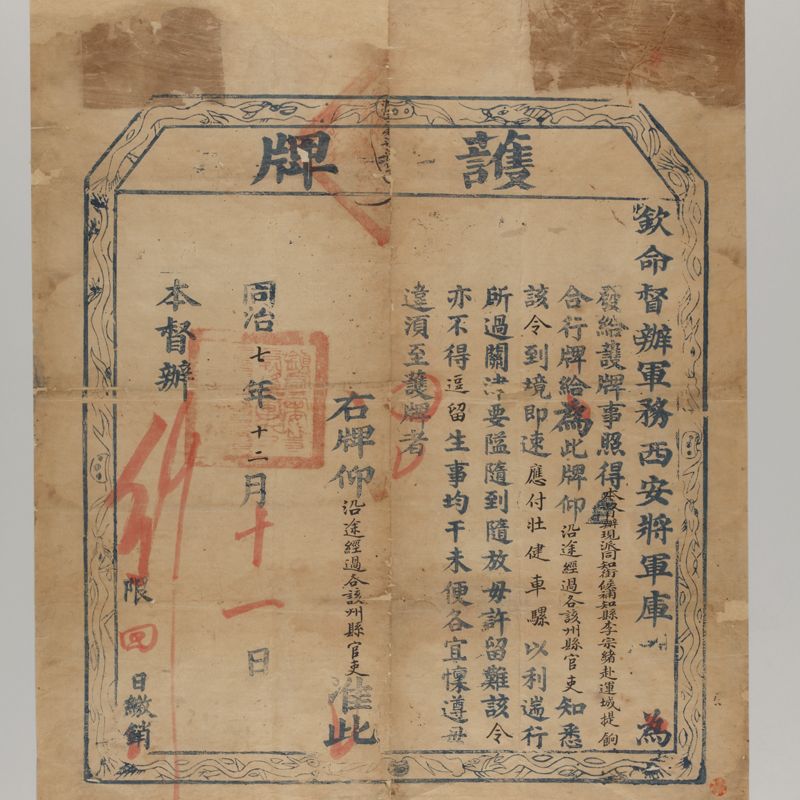 護牌
欽命督辦軍務西安將軍庫 為
發給護牌事照得本督辦現派同知銜候補知縣李宗緒赴運城提餉
合行牌給為此牌仰沿途經過各該州縣官吏知悉
該令到境即速應付壯健車騾以利遄行
所過關津要隘隨到隨放毋許留難該令
亦不得逗留生事均干未便各宜懍遵毋
違須至護牌者
右牌仰沿途經過各該州縣官吏 准此
同治七年十二月十一日
本督辦
限四日繳銷